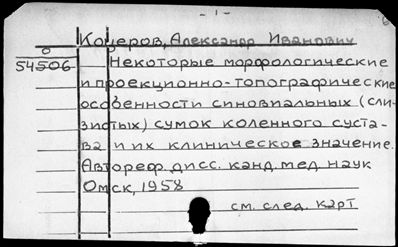 - 1 -
Кочеров, Александр Иванович
0
54506
Некоторые морфологические
и проекционно-топографические
особенности синовиальных (сли-
зистых) сумок коленного суста-
ва и их клиническое значение.
Автореф. дисс. канд. мед. наук
Омск, 1958
см. след. карт